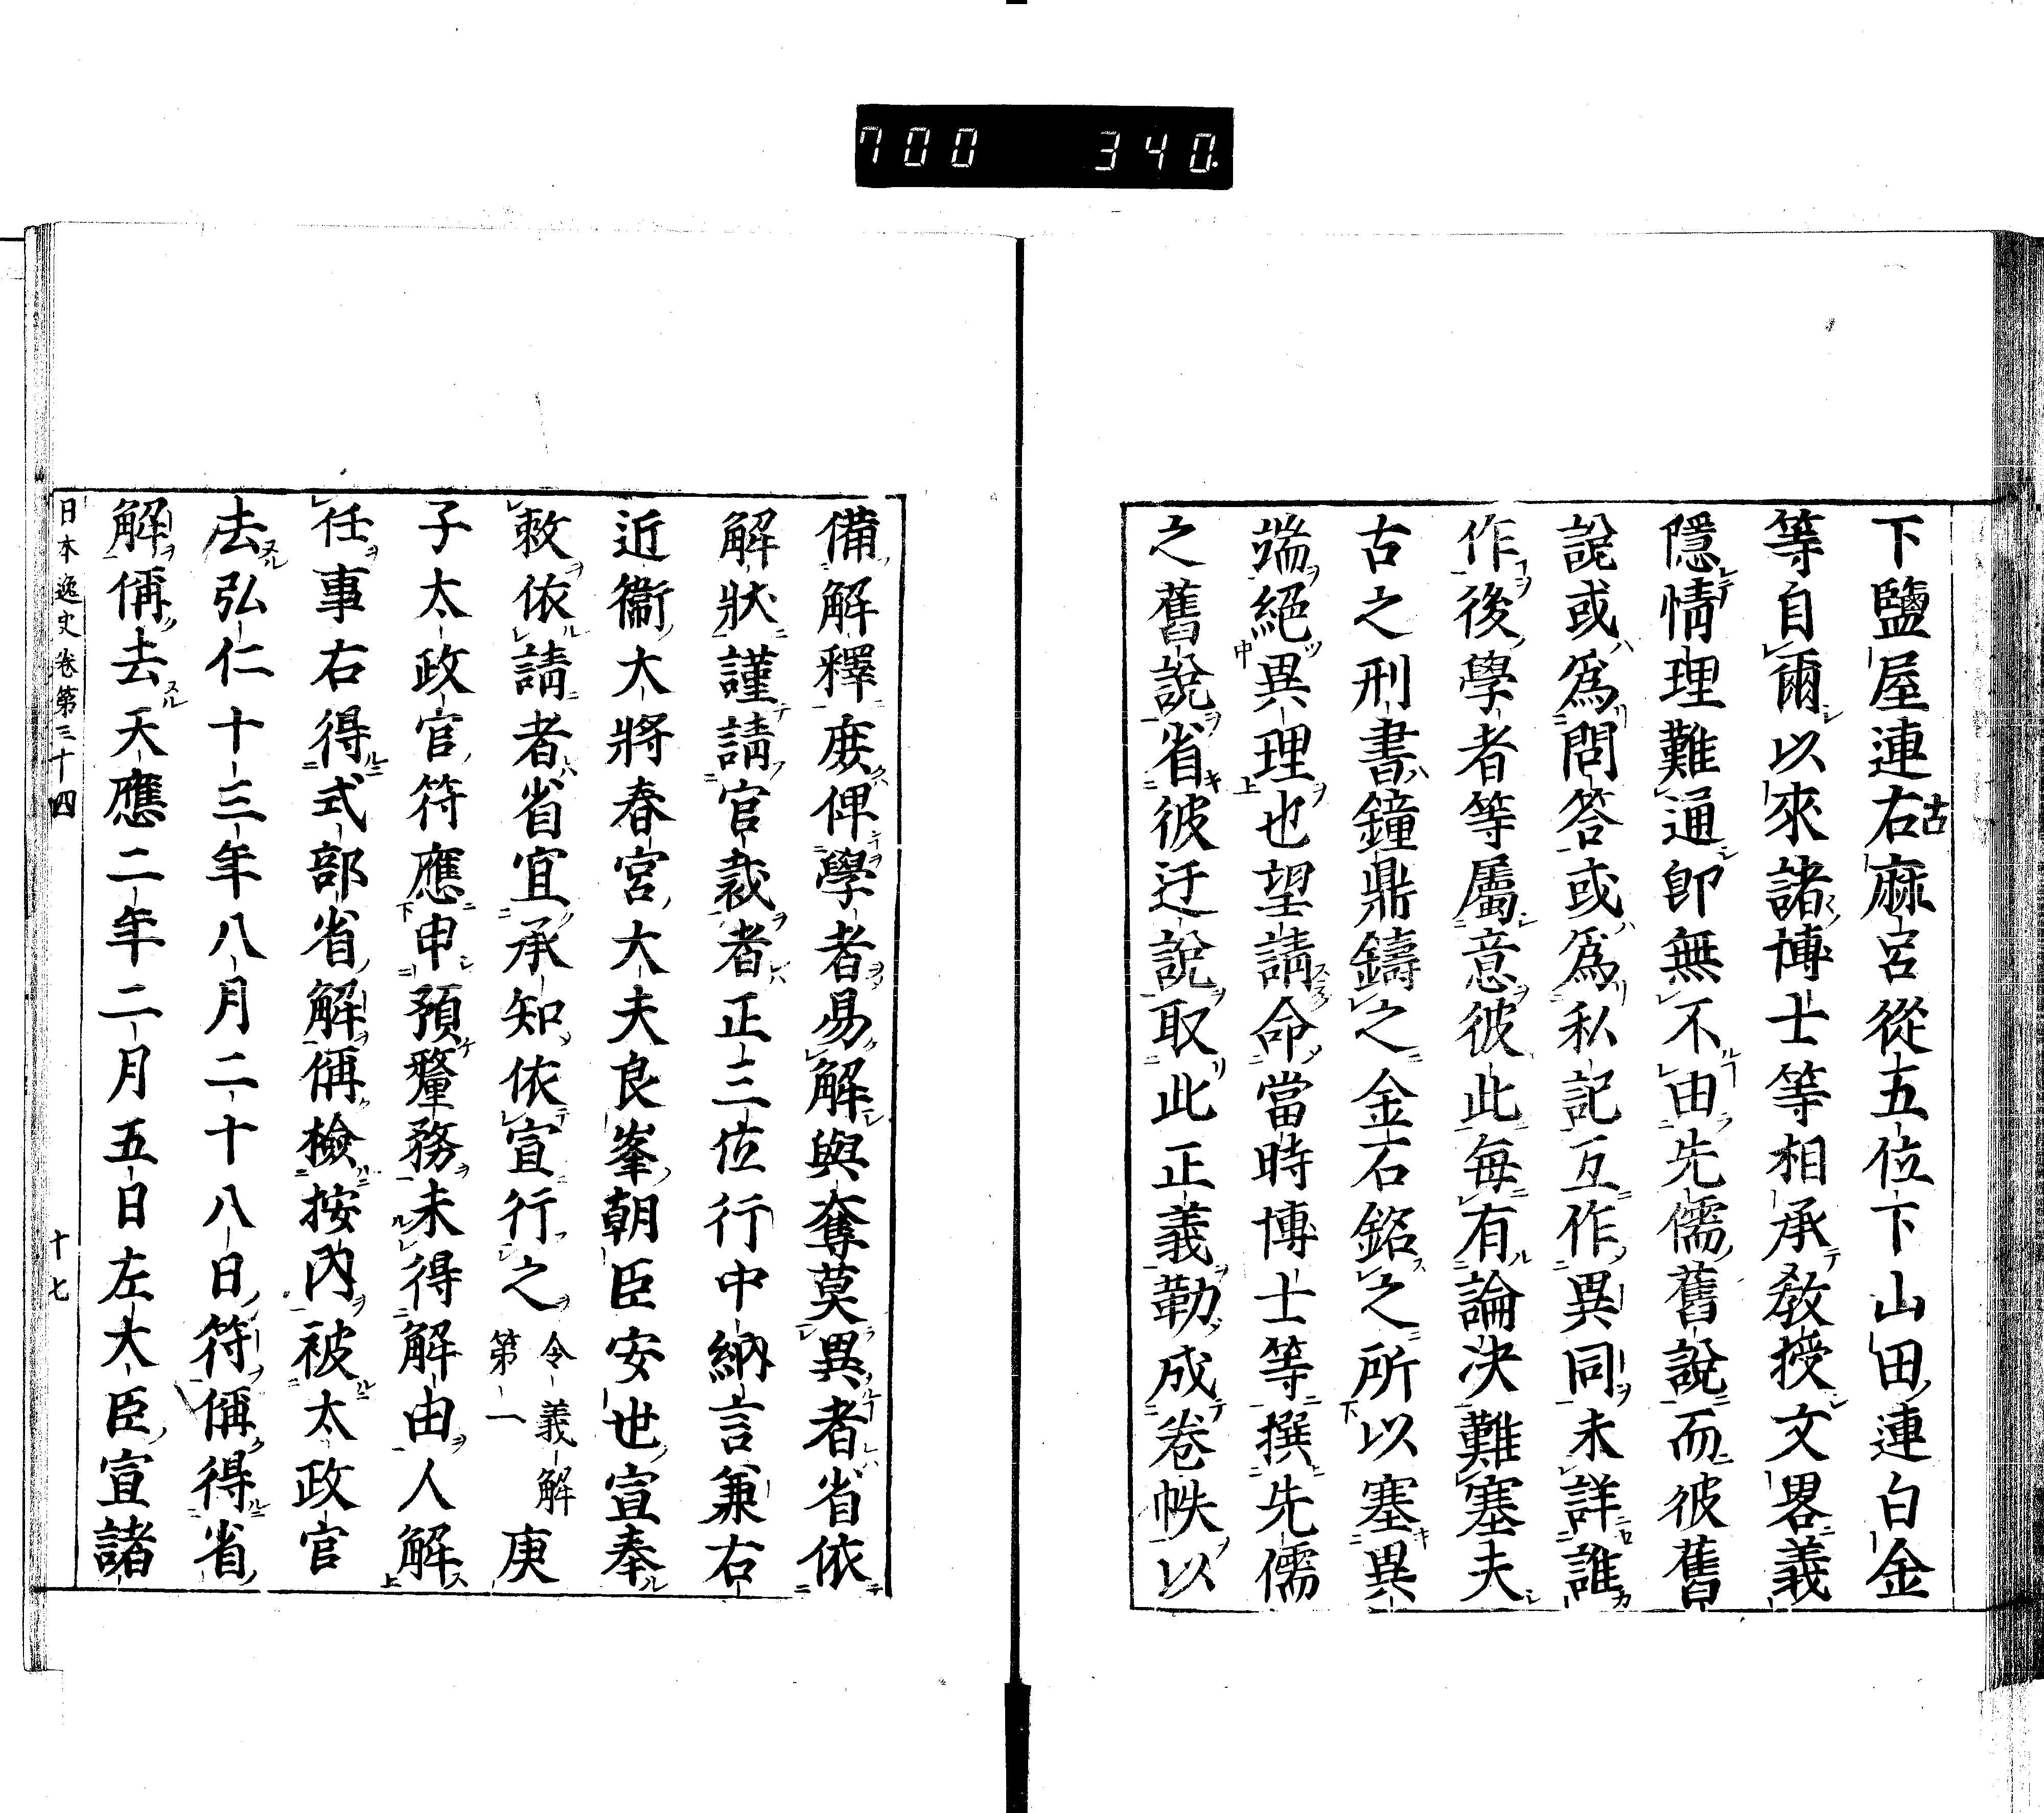 700 340.
下鹽屋連右麻呂從五位下山田連白金
古
等自爾以來諸博士等相承教授文畧義
隱情理難通卽無不由先儒舊說而彼舊
說或爲問答或爲私記互作異同未詳誰
作後學者等屬意彼此每有論决難塞夫
古之刑書鐘鼎鑄之金石銘之所以塞異
端絕異理也望請命當時博士等撰先儒
之舊說省彼迂說取此正義勒成卷帙以
備解釋庶俾學者易解與奪莫異者省依
解狀謹請官裁者正三位行中納言兼右
近衞大將春宮大夫良峯朝臣安世宣奉
敕依請者省宜承知依宣行之令義解第一庚
子太政官符應申預釐務未得解由人解
任事右得式部省解偁檢按內被太政官
去弘仁十三年八月二十八日符偁得省
解偁去天應二年二月五日左大臣宣諸
日本逸史卷第三十四 十七